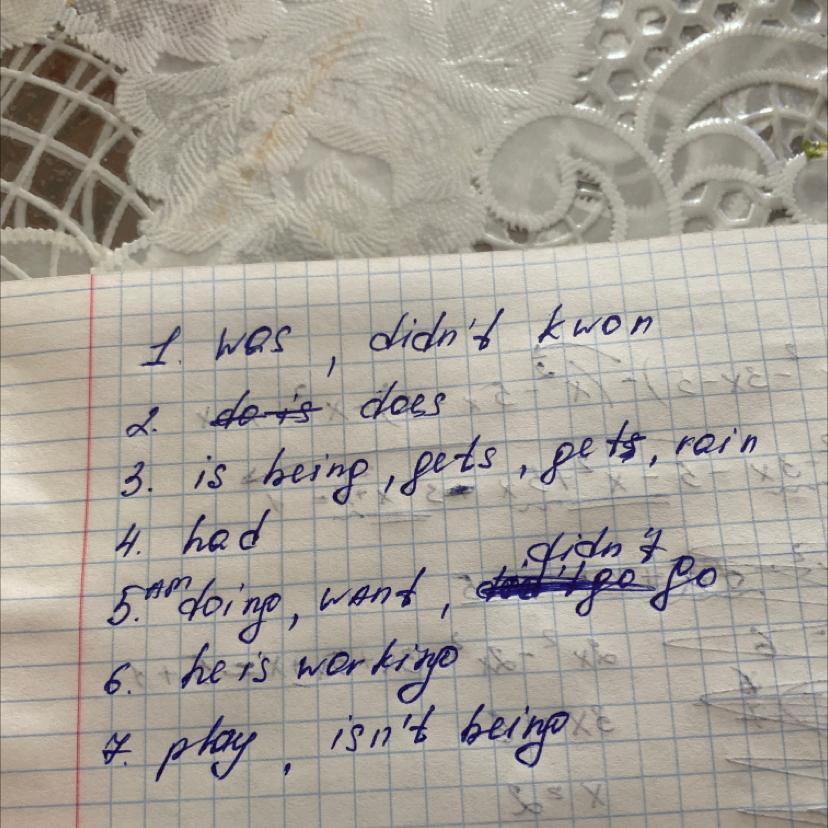 1. was, didn't kwon
2. do is does
3. is being, gets, gets, rain
4. had
5. AM doing, want, didn't go
6. he is working
7. play, isn't being
x = 2